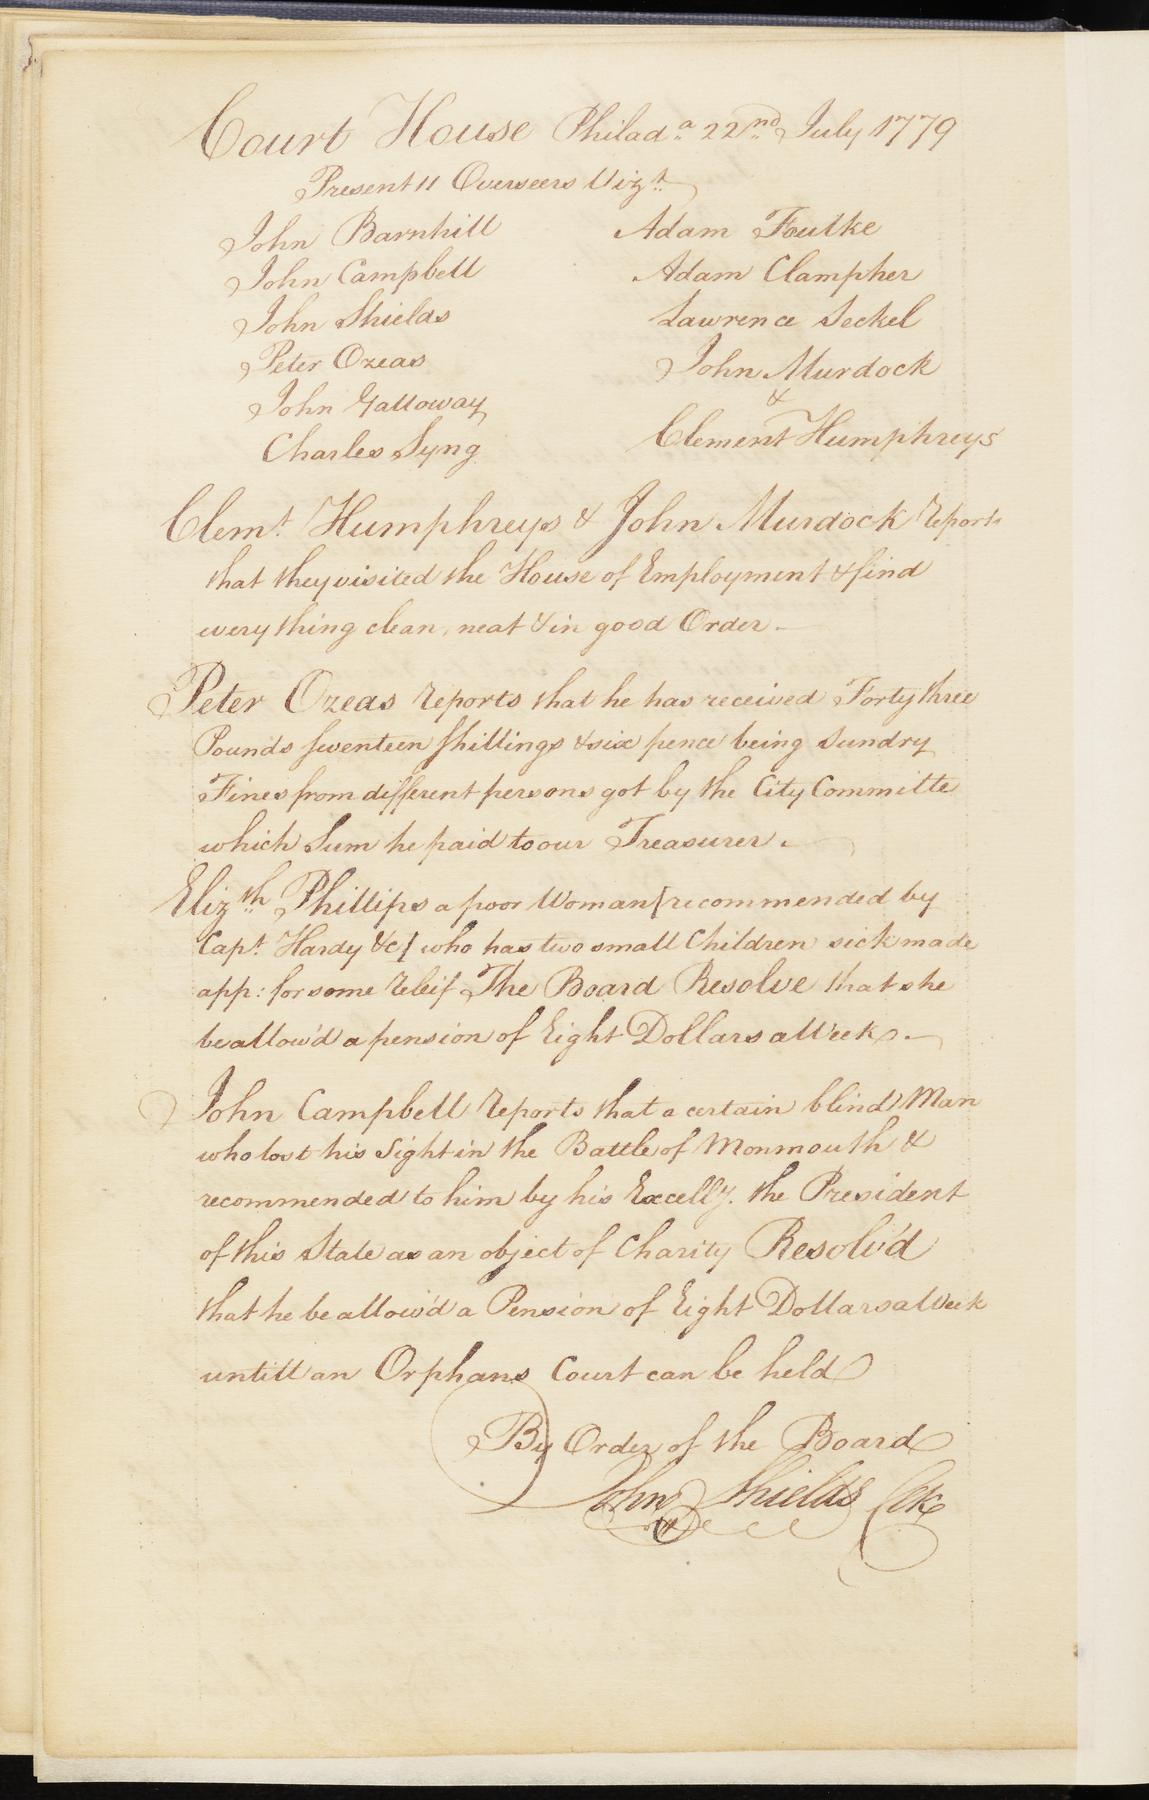 Court House Philad.a 22nd July 1779
Present 11 Overseers Vizt.
John Barnhill
John Campbell
John Shields
Peter Ozeas
John Galloway
Charles Syng
Adam Foulke
Adam Clampher
Lawrence Seckel
John Murdock
&
Clement Humphreys
Clemt. Humphreys & John Murdock Reports
that they visited the House of Employment & find
every thing clean, neat & in good Order.
Peter Ozeas Reports that he has received Forty three
Pounds seventeen Shillings & six pence being Sundry
Fines from different persons got by the City Committe
which Sum he paid to our Treasurer.
Elizth. Phillips a poor Woman [recommended by
Capt. Hardy &c] who has two small Children sick made
app: for some Releif The Board Resolve that she
be allow'd a pension of Eight Dollars a Week.
John Campbell Reports that a certain blind Man
who lost his Sight in the Battle of Monmouth &
recommended to him by his Excelly. the President
of this State as an object of Charity Resolv'd
that he be allow'd a Pension of Eight Dollars a Week
untill an Orphans Court can be held
By Order of the Board
John Shields Clk